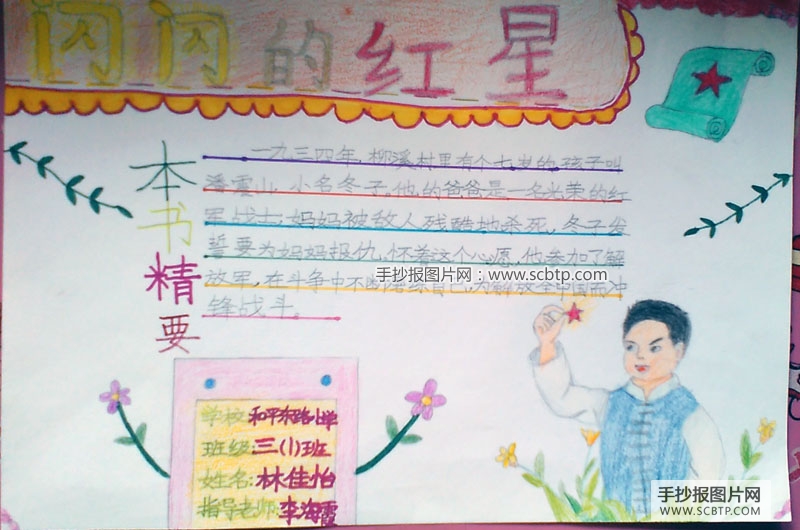 闪闪的红星
本书精要
一九三四年,柳溪村里有个七岁的孩子叫
潘震山,小名冬子。他的爸爸是一名光荣的红
军战士;妈妈被敌人残酷地杀死,冬子发
誓要为妈妈报仇,怀着这个心愿,他参加了解
放军,在斗争中不断磨练自己,为解放全中国而冲
锋战斗。
手抄报图片网:www.scbtp.com
学校:和平东路小学
班级:三(1)班
姓名:林佳怡
指导老师:李海霞
手抄报图片网
WWW.SCBTP.COM